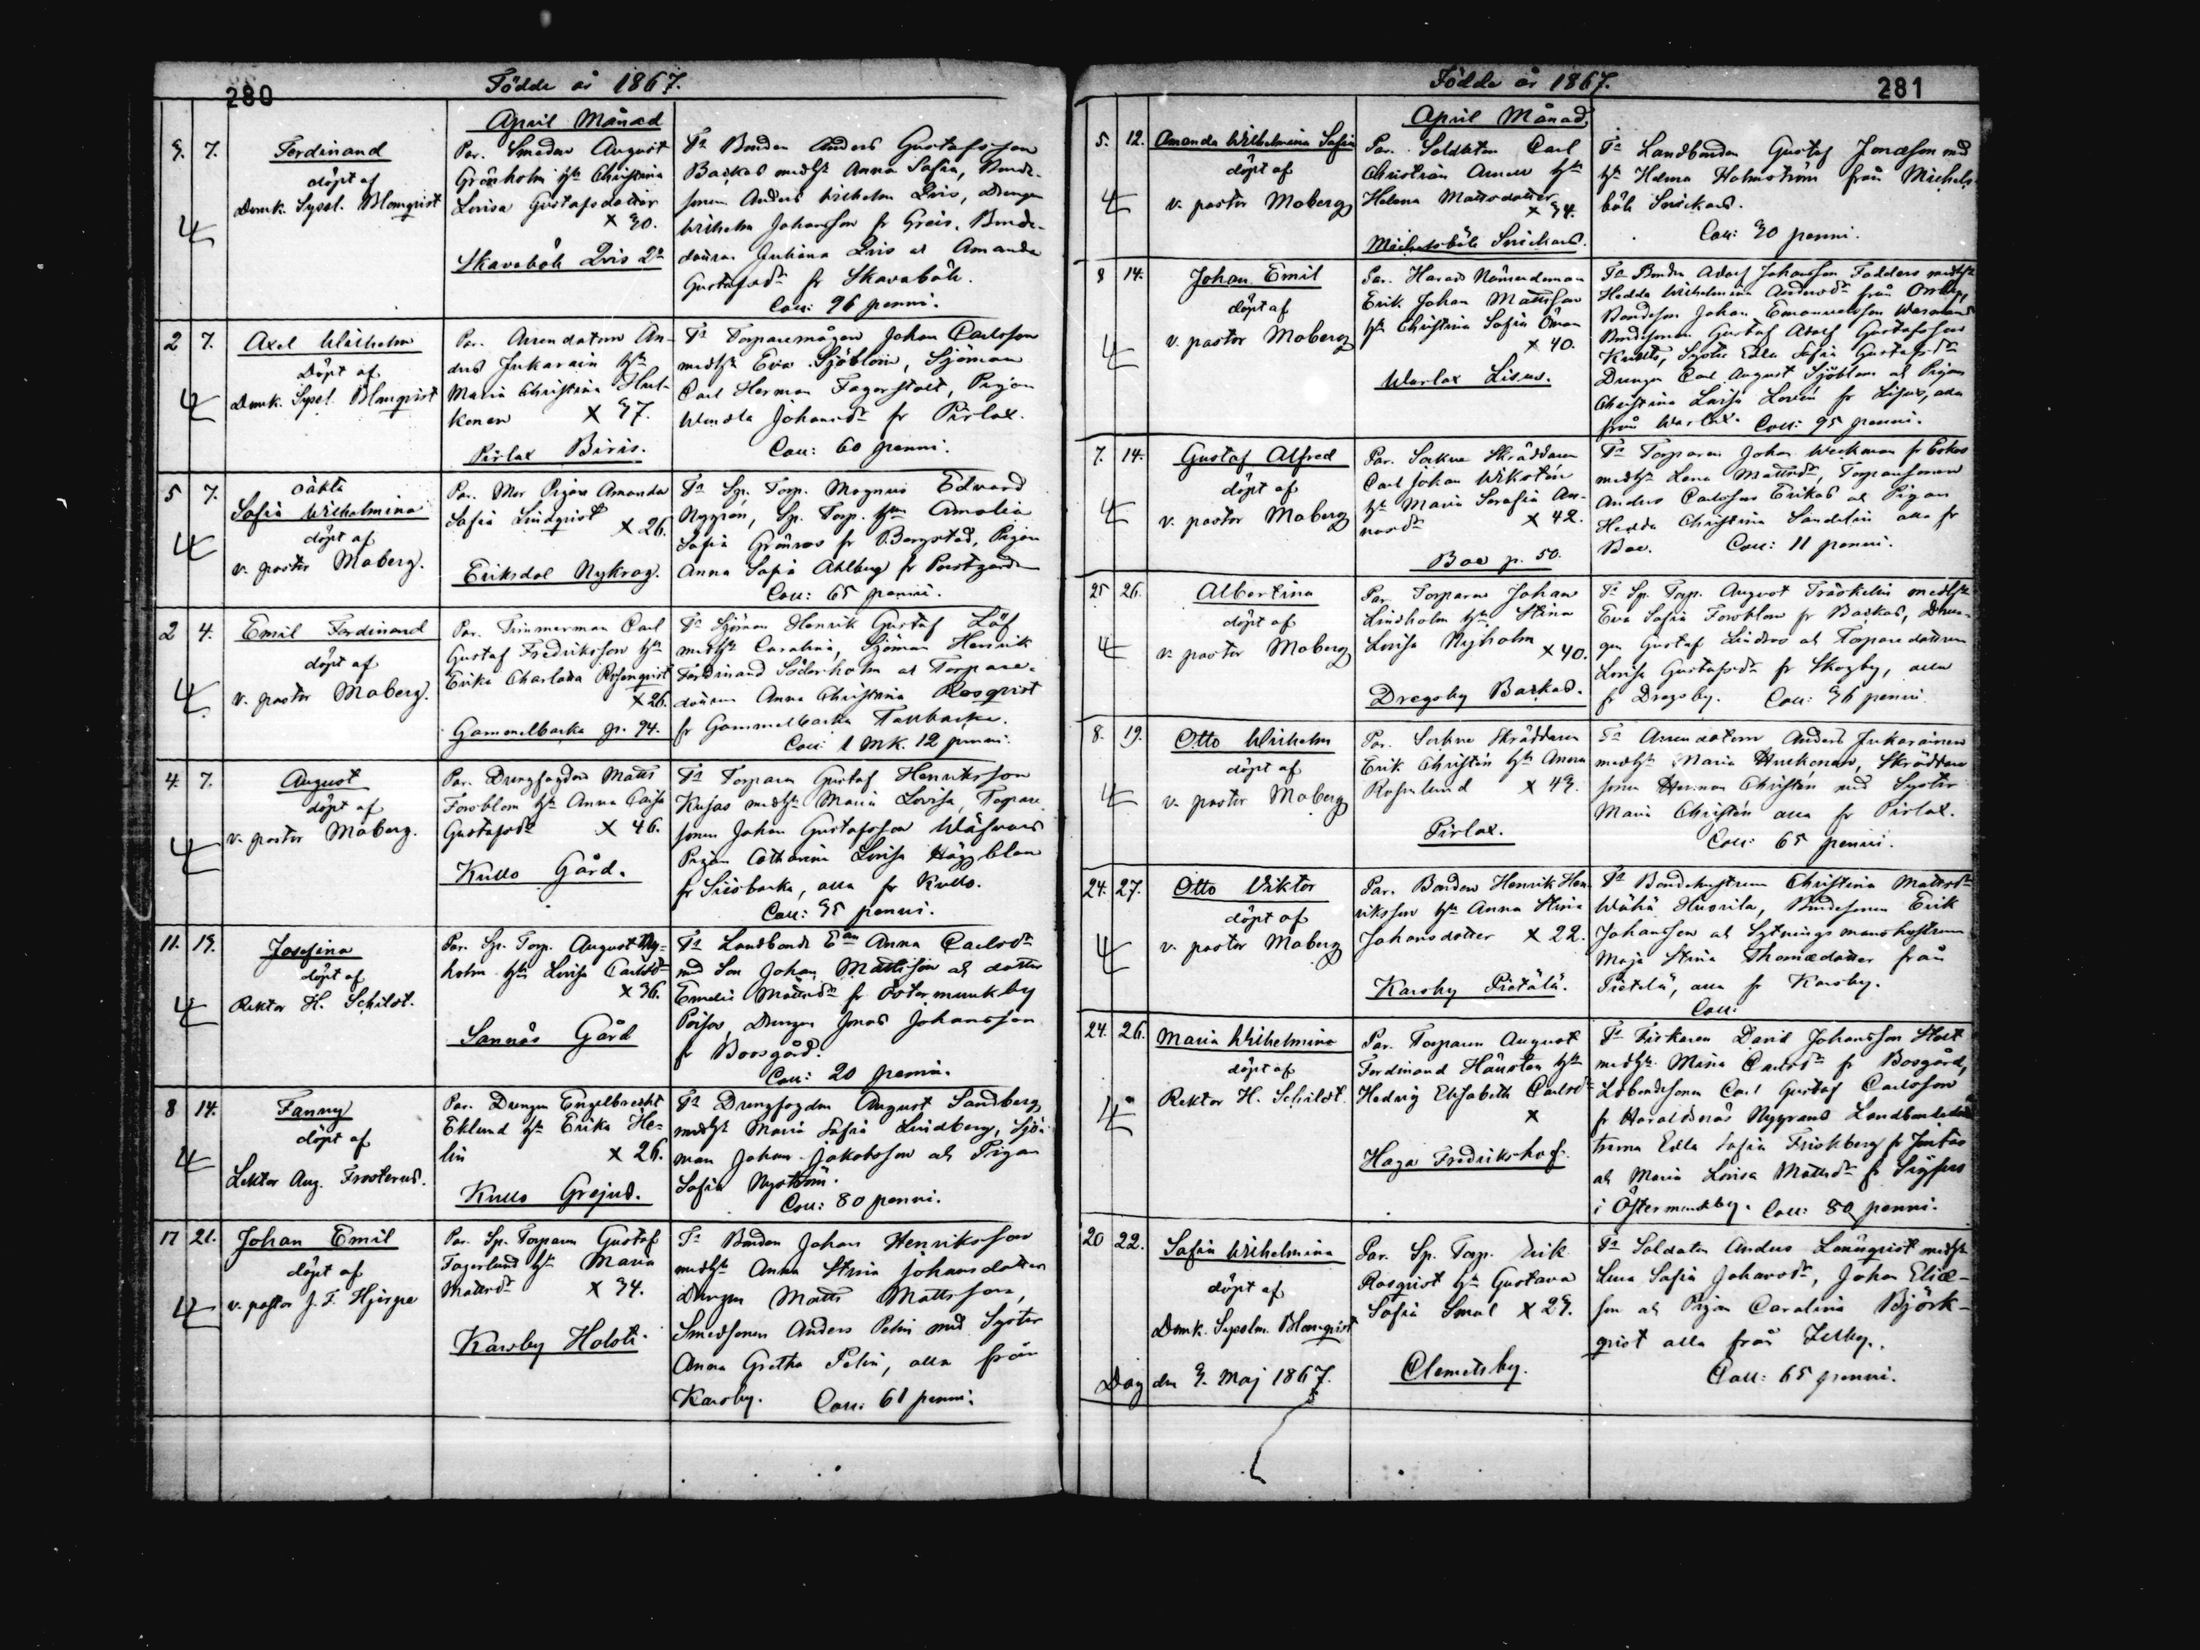 280
Födde år 1867.
April Månad
3. 7. Ferdinand
döpt af
Domk. Sysl. Blomqvist
Par. Smeden August
Grönholm hu Christina
Lovisa Gustafsdotter
x 30.
Skavabök Qvis
Fa Bonden Anders Gustafsson
Backas medhu Anna Sofia, Bonde-
sonen Anders Wilhelm Qvis, Drengen
Wilhelm Johansson fr Greis. Bonde-
dottren Juliana Qvis ak Amanda
Gustafsdr fr Skavabök.
Coll: 96 penni.
2 7. Axel Wilhelm
Döpt af
Domk. Sysl. Blomqvist
Par. Arrendatorn An-
ders Jukarain hu
Maria Christina
konen x 37.
Pirlax Biris.
Fa Torparemågen Johan Carlsson
medhu Eva Sjöblom, Sjöman
Carl Herman Fagerstolt, Pigan
Wendla Johansdr fr Pirlax.
Coll: 60 penni.
5 7. oäkta
Sofia Wilhelmina
döpt af
v. pastor Moberg.
Par. Mor Pigan Amanda
Sofia Lindqvist x 26.
Eriksdal Nykrog.
Fa Sp. Torp. Magnus Edvard
Nygrén, Sp. Torp. hun Amalia
Sofia Grönroos fr Bergstad, Pigan
Anna Sofia Ahlberg fr Prostgården
Coll: 65 penni.
2 4. Emil Ferdinand
döpt af
v. pastor Moberg.
Par. Timmerman Carl
Gustaf Fredriksson hu
Erika Charlotta Rosenqvist
x 26.
Gammelbacka p. 94.
Fa Sjöman Henrik Gustaf Löf
medhu Carolina, Sjöman Henrik
Ferdinand Söderholm ak Torpare-
dottren Anna Christina Rosqvist
fr Gammelbacka Tallbacka.
Coll: 1 mk. 12 penni.
4. 7. August
döpt af
v. pastor Moberg.
Par. Drengfogden Matts
Forsblom hu Anna Caisa
Gustafsdr x 46.
Kullo Gård.
Fa Torparen Gustaf Henriksson
Kusas medhu Maria Lovisa, Torpare
sonen Johan Gustafsson
Pigan Catharina Lovisa Häggblom
fr Siisbacka, alla fr Kullo.
Coll: 35 penni.
11. 19. Josefina
döpt af
Rektor H. Schildt.
Par. Sp. Torp. August Ny-
holm hu Lovisa Carlsdr
x 36.
Sannäs Gård
Fa Landbonde Ean Anna Carlsdr
med Son Johan Mattsson ak dotter
Emelie Mattsdr fr Östermunkby
Drengen Jonas Johansson
fr Boesgård.
Coll: 20 penni.
8 14. Fanny
döpt af
Lektor Aug. Frosterus.
Par. Drengen Engelbrecht
Eklund hu Erika He-
lin x 26.
Kullo Grejus.
Fa Drengfogden August Sandberg
medhu Maria Sofia Lindberg, Sjö-
man Johan Jakobsson ak Pigan
Sofia Nyström.
Coll: 80 penni.
17 21. Johan Emil
döpt af
v. pastor J. F. Hjerpe
Par. Sp. Torparen Gustaf
Fagerlund hu Maria
Mattsdr x 34.
Karsby Holsti.
Fa Bonden Johan Henriksson
medhu Anna Stina Johansdotter
Drengen Matts Mattsson,
Smedsonen Anders Pelin med Syster
Anna Gretha Pelin, alla från
Karsby. Coll: 61 penni.
Födde år 1867.
281
April Månad
5. 12. Amanda Wilhelmina Sofia
döpt af
v. pastor Moberg
Par. Soldaten Carl
Christian hu
Helena Mattsdotter
x 34.
Mickelsböle Snickars.
Fa Landbonden Gustaf Jonasson med
hu Helena Holmström från Mickels-
böle Snickars.
Coll: 30 penni.
8 14. Johan Emil
döpt af
v. pastor Moberg
Par. Härads Nämndeman
Erik Johan Mattsson
hu Christina Sofia Öman
x 40.
Warlax Lisus.
Fa Bonden Adolf Johansson Fadders medhu
Hedda Wilhelmina Andersdr från
Bondeson Johan Emanuelsson
Bondesonen Gustaf Adolf Gustafsson
Syster Edla Sofia Gustafsdr
Drengen Carl August Sjöblom ak Pigan
Christina Lovisa Lovén fr Lisus, alla
från Warlax. Coll: 95 penni.
7. 14. Gustaf Alfred
döpt af
v. pastor Moberg
Par. Sockne Skräddaren
Carl Johan Wikstén
hu Maria Serafia An-
x 42.
Boe p. 50.
Fa Torparen Johan Weckman fr Eskas
medhu Lena Mattsdr, Torparsonen
Anders Carlsson Erikas ak Pigan
Hedda Christina Sandelin alla fr
Boe. Coll: 11 penni.
25 26. Albertina
döpt af
v. pastor Moberg
Par. Torparen Johan
Lindholm hu Stina
Lovisa Nyholm x 40.
Dregsby Backas.
Fa Sp. Torp. August Träskelin medhu
Eva Sofia Forsblom fr Backas, Dren-
gen Gustaf Lindroos ak Torpare dottren
Lovisa Gustafsdr fr Skogby, alla
fr Dregsby. Coll: 36 penni.
8. 19. Otto Wilhelm
döpt af
v. pastor Moberg
Par. Sockne Skräddaren
Erik Christén hu Anna
Rosenlund x 43.
Pirlax.
Fa Arrendatorn Anders Jukarainen
medhu Maria Huckonen, Skräddare
sonen Herman Christén med Syster
Maria Christén alla fr Pirlax.
Coll: 65 penni.
24. 27. Otto Viktor
döpt af
v. pastor Moberg
Par. Bonden Henrik Hen-
riksson hu Anna Stina
Johansdotter x 22.
Karsby Pietälä.
Fa Bondehustrun Christina Mattsdr
Wähä Huorila, Bondesonen Erik
Johansson ak Sytningsmanshustrun
Maja Stina Thomædotter från
Pietälä, alla fr Karsby.
Coll:
24. 26. Maria Wilhelmina
döpt af
Rektor H. Schildt.
Par. Torparen August
Ferdinand Hänsten hu
Hedvig Elisabeth Carlsdr
x
Haga Fredrikshof.
Fa Fiskaren David Johansson Stolt
medhu Maria Carlsdr fr Bosgård,
Carl Gustaf Carlsson
fr Haraldsnäs Nygrans
Edla Sofia Friskberg fr
ak Maria Lovisa Mattsdr fr Sigfrus
i Östermunkby. Coll: 80 penni.
20 22. Sofia Wilhelmina
döpt af
Domk. Syselm. Blomqvist
Par. Sp. Torp. Erik
Rosqvist hu Gustava
Sofia Smal x 29.
Clemetsby.
Fa Soldaten Anders Lönnqvist medhu
Lena Sofia Johansdr, Johan Elias-
son ak Pigan Carolina Björk-
qvist alla från Illby.
Coll: 65 penni.
Dag den 3. Maj 1867.